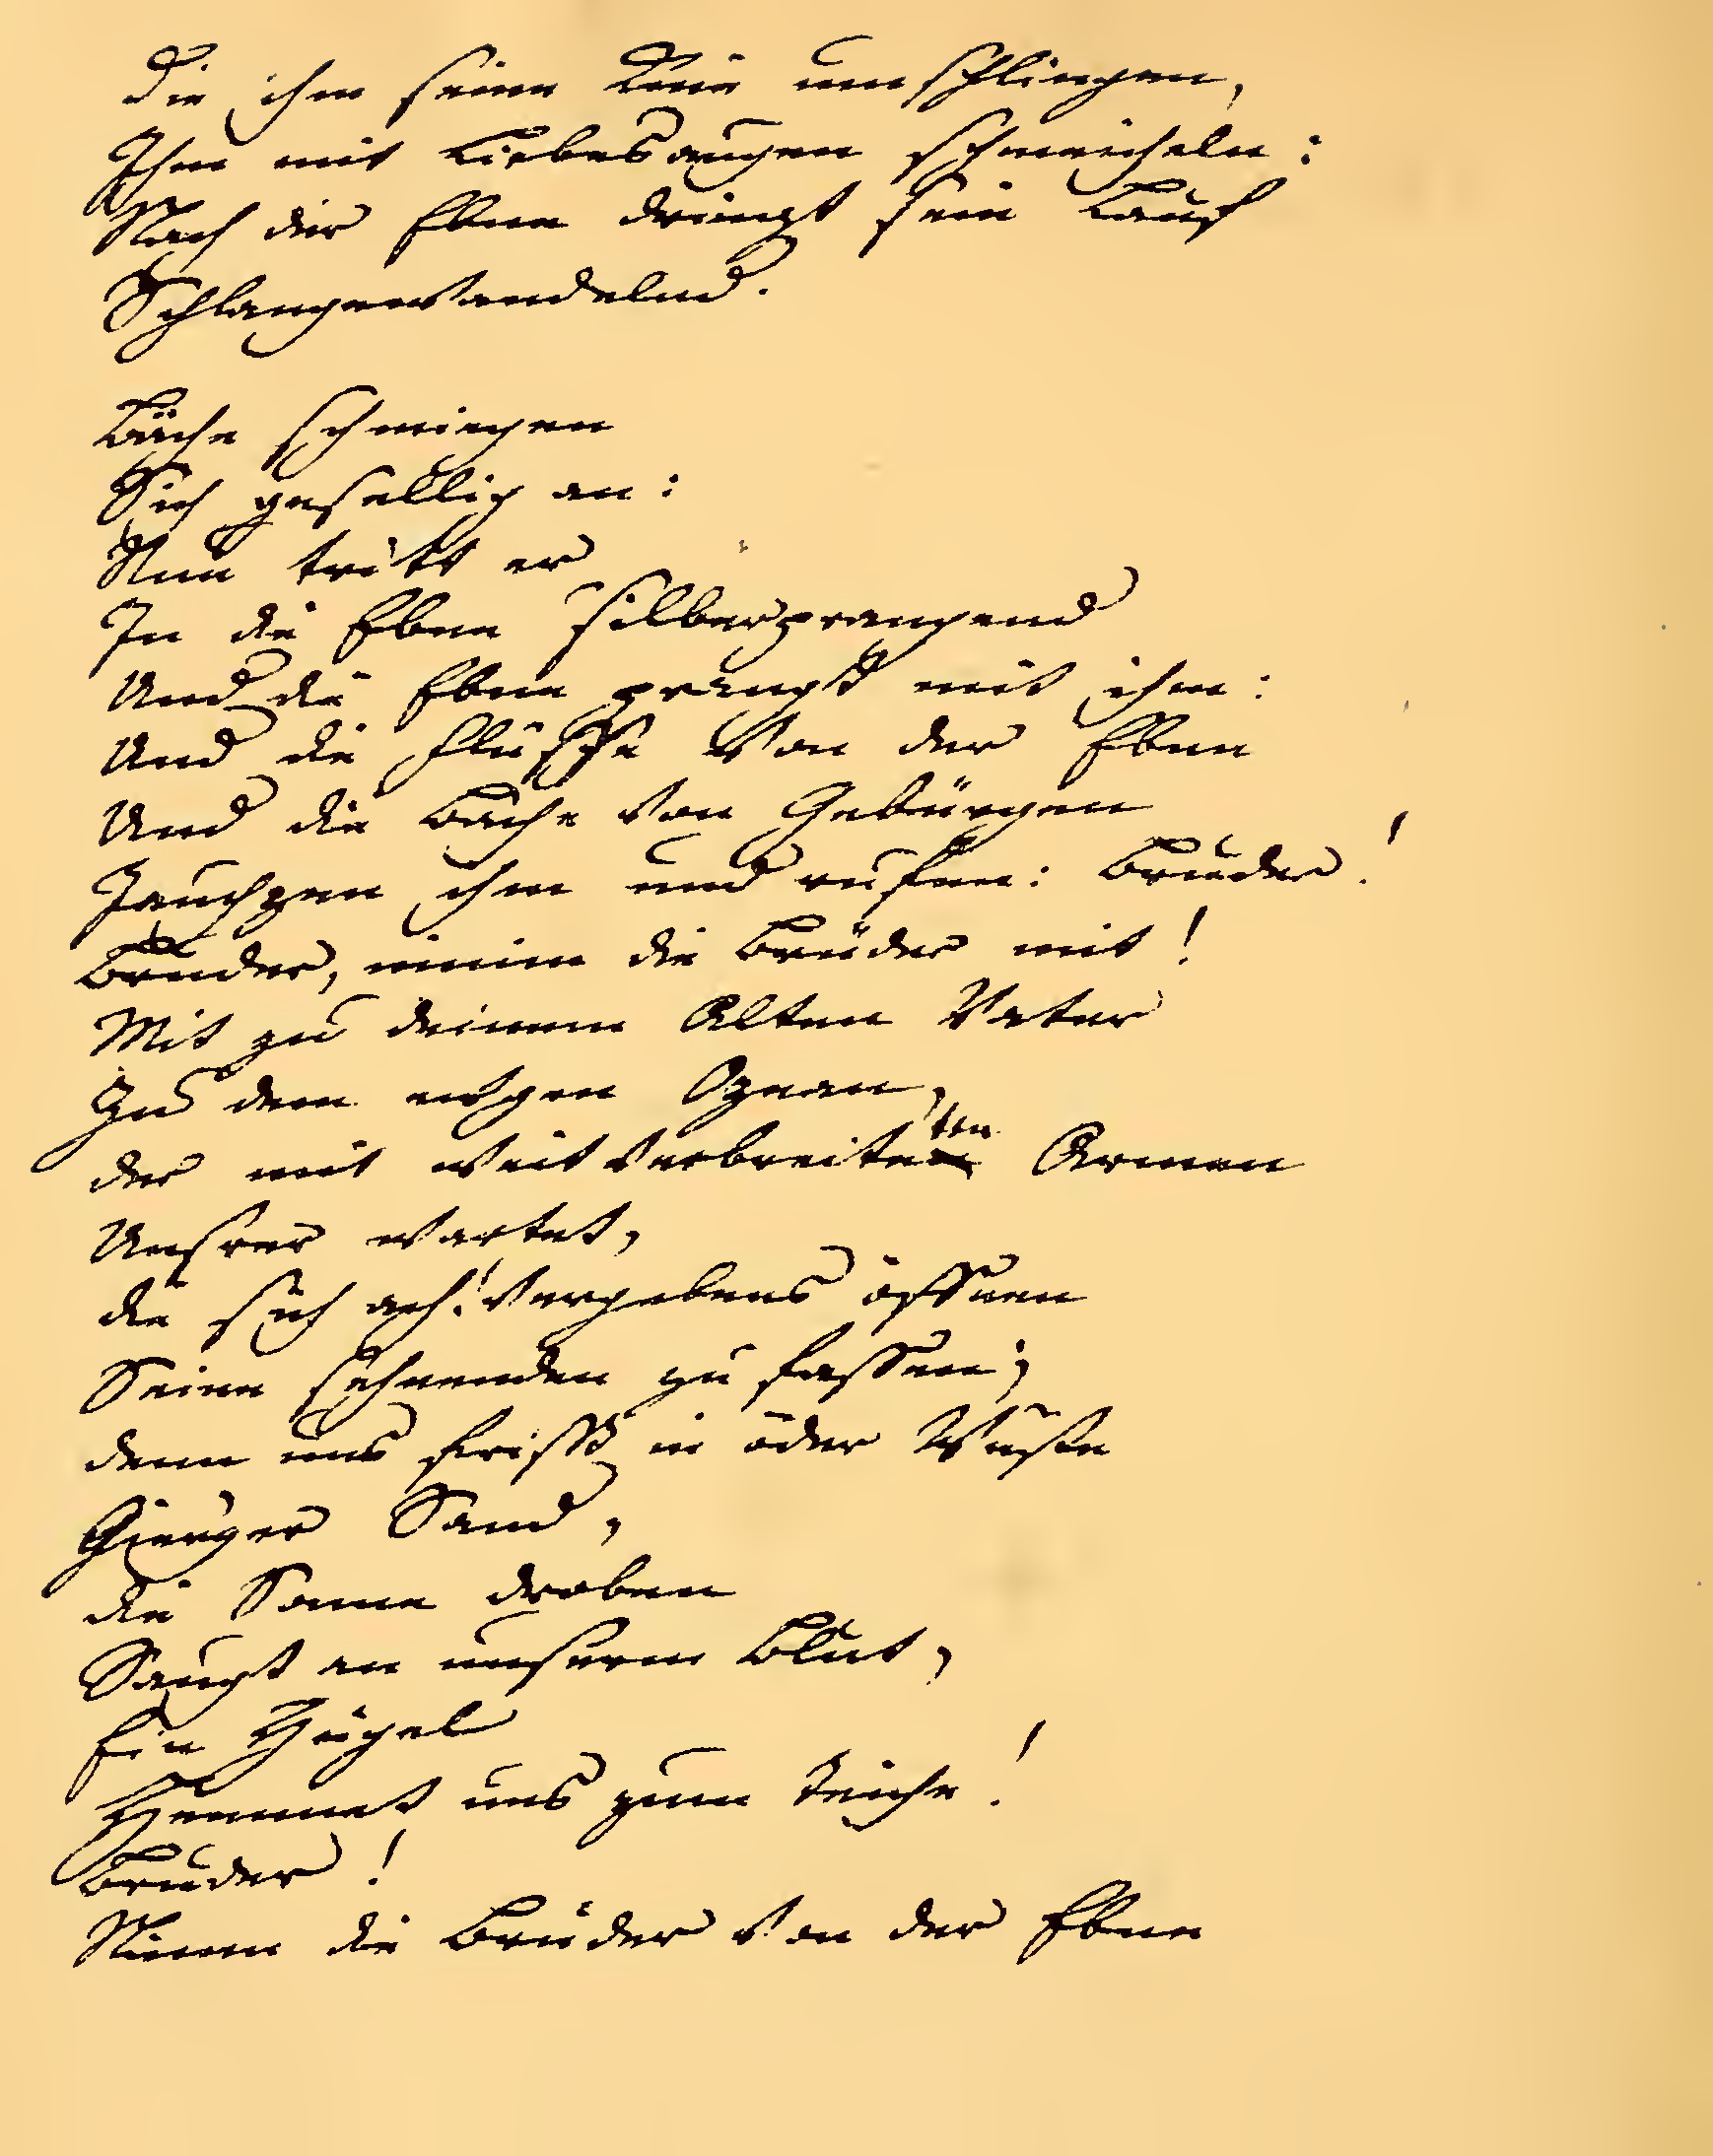 Die ihm seine Knie umschlingen,
Ihm mit Liebesaugen schmeicheln:
Nach der Ebne dringt sein Lauf
Schlangewandelnd.
Bäche schmiegen
Sich gesellig an:
Nun tritt er
In die Ebne silberprangend
Und die Ebne prangt mit ihm:
Und die Flüsse von der Ebne
Und die Bäche von Gebürgen
Jauchzen ihm und rufen: Bruder!
Bruder, nimm die Brüder mit!
Mit zu deinem Alten Vater
Zu dem ewgen Ozean,
der mit weitverbreiteten Armen
Unsrer wartet,
die sich ach! vergebens öffnen
Seine sehnenden zu fassen;
denn uns frisst in öder Wüste
Gieriger Sand,
die Sonne droben
Saugt an unserm Blut,
Ein Hügel
Hemmet uns zum Teiche!
Bruder!
Nimm die Brüder von der Ebne